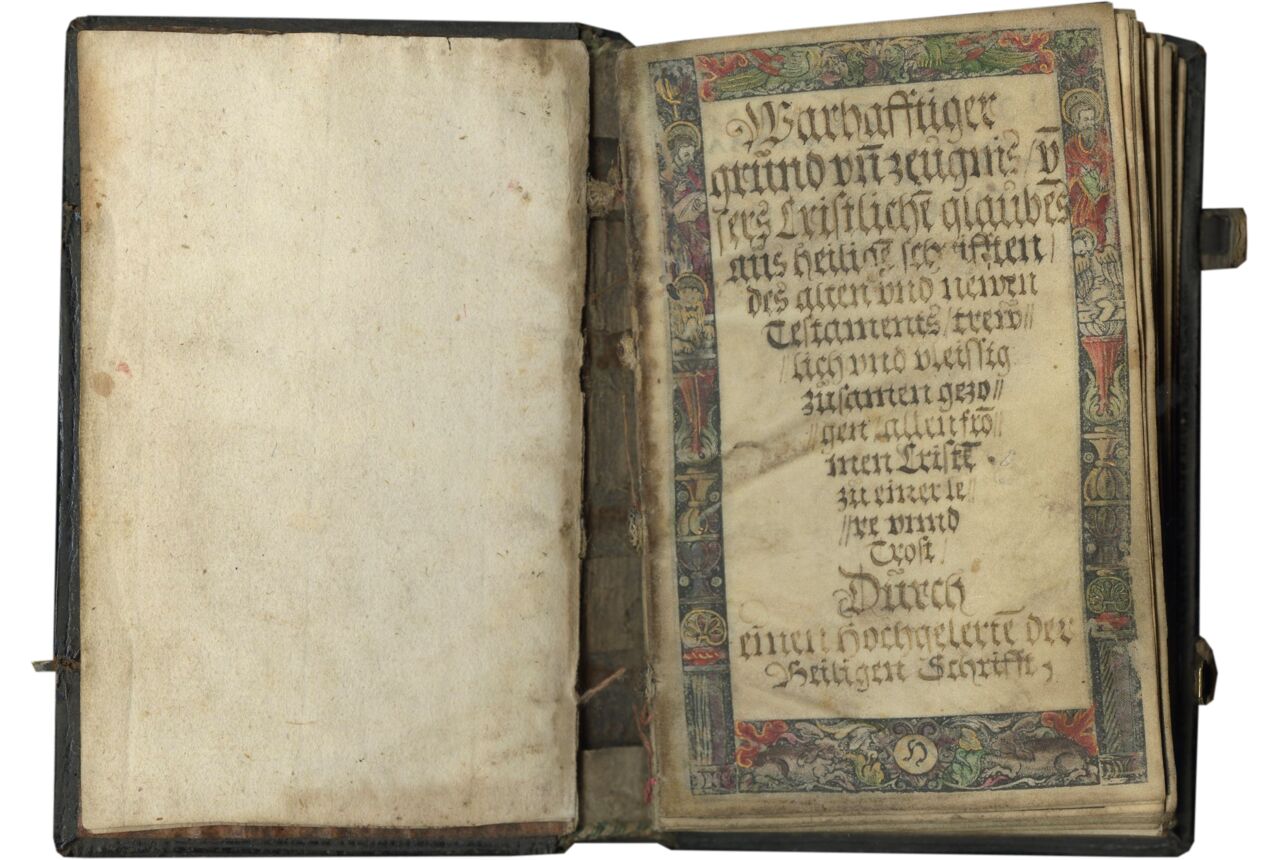 Warhafftiger
grund vn̄ zeugnis / v̄
sers Cristlichē glaubēs
aus heiligē schrifften /
des alten vnd newen
Testaments / trew //
// lich vnd vleissig
zusamen gezo //
// gen / allen frō //
men Cristē
zu einer le //
// re vnnd
Trost /
Durch
einen hochgelertē der
Heiligen Schrifft,